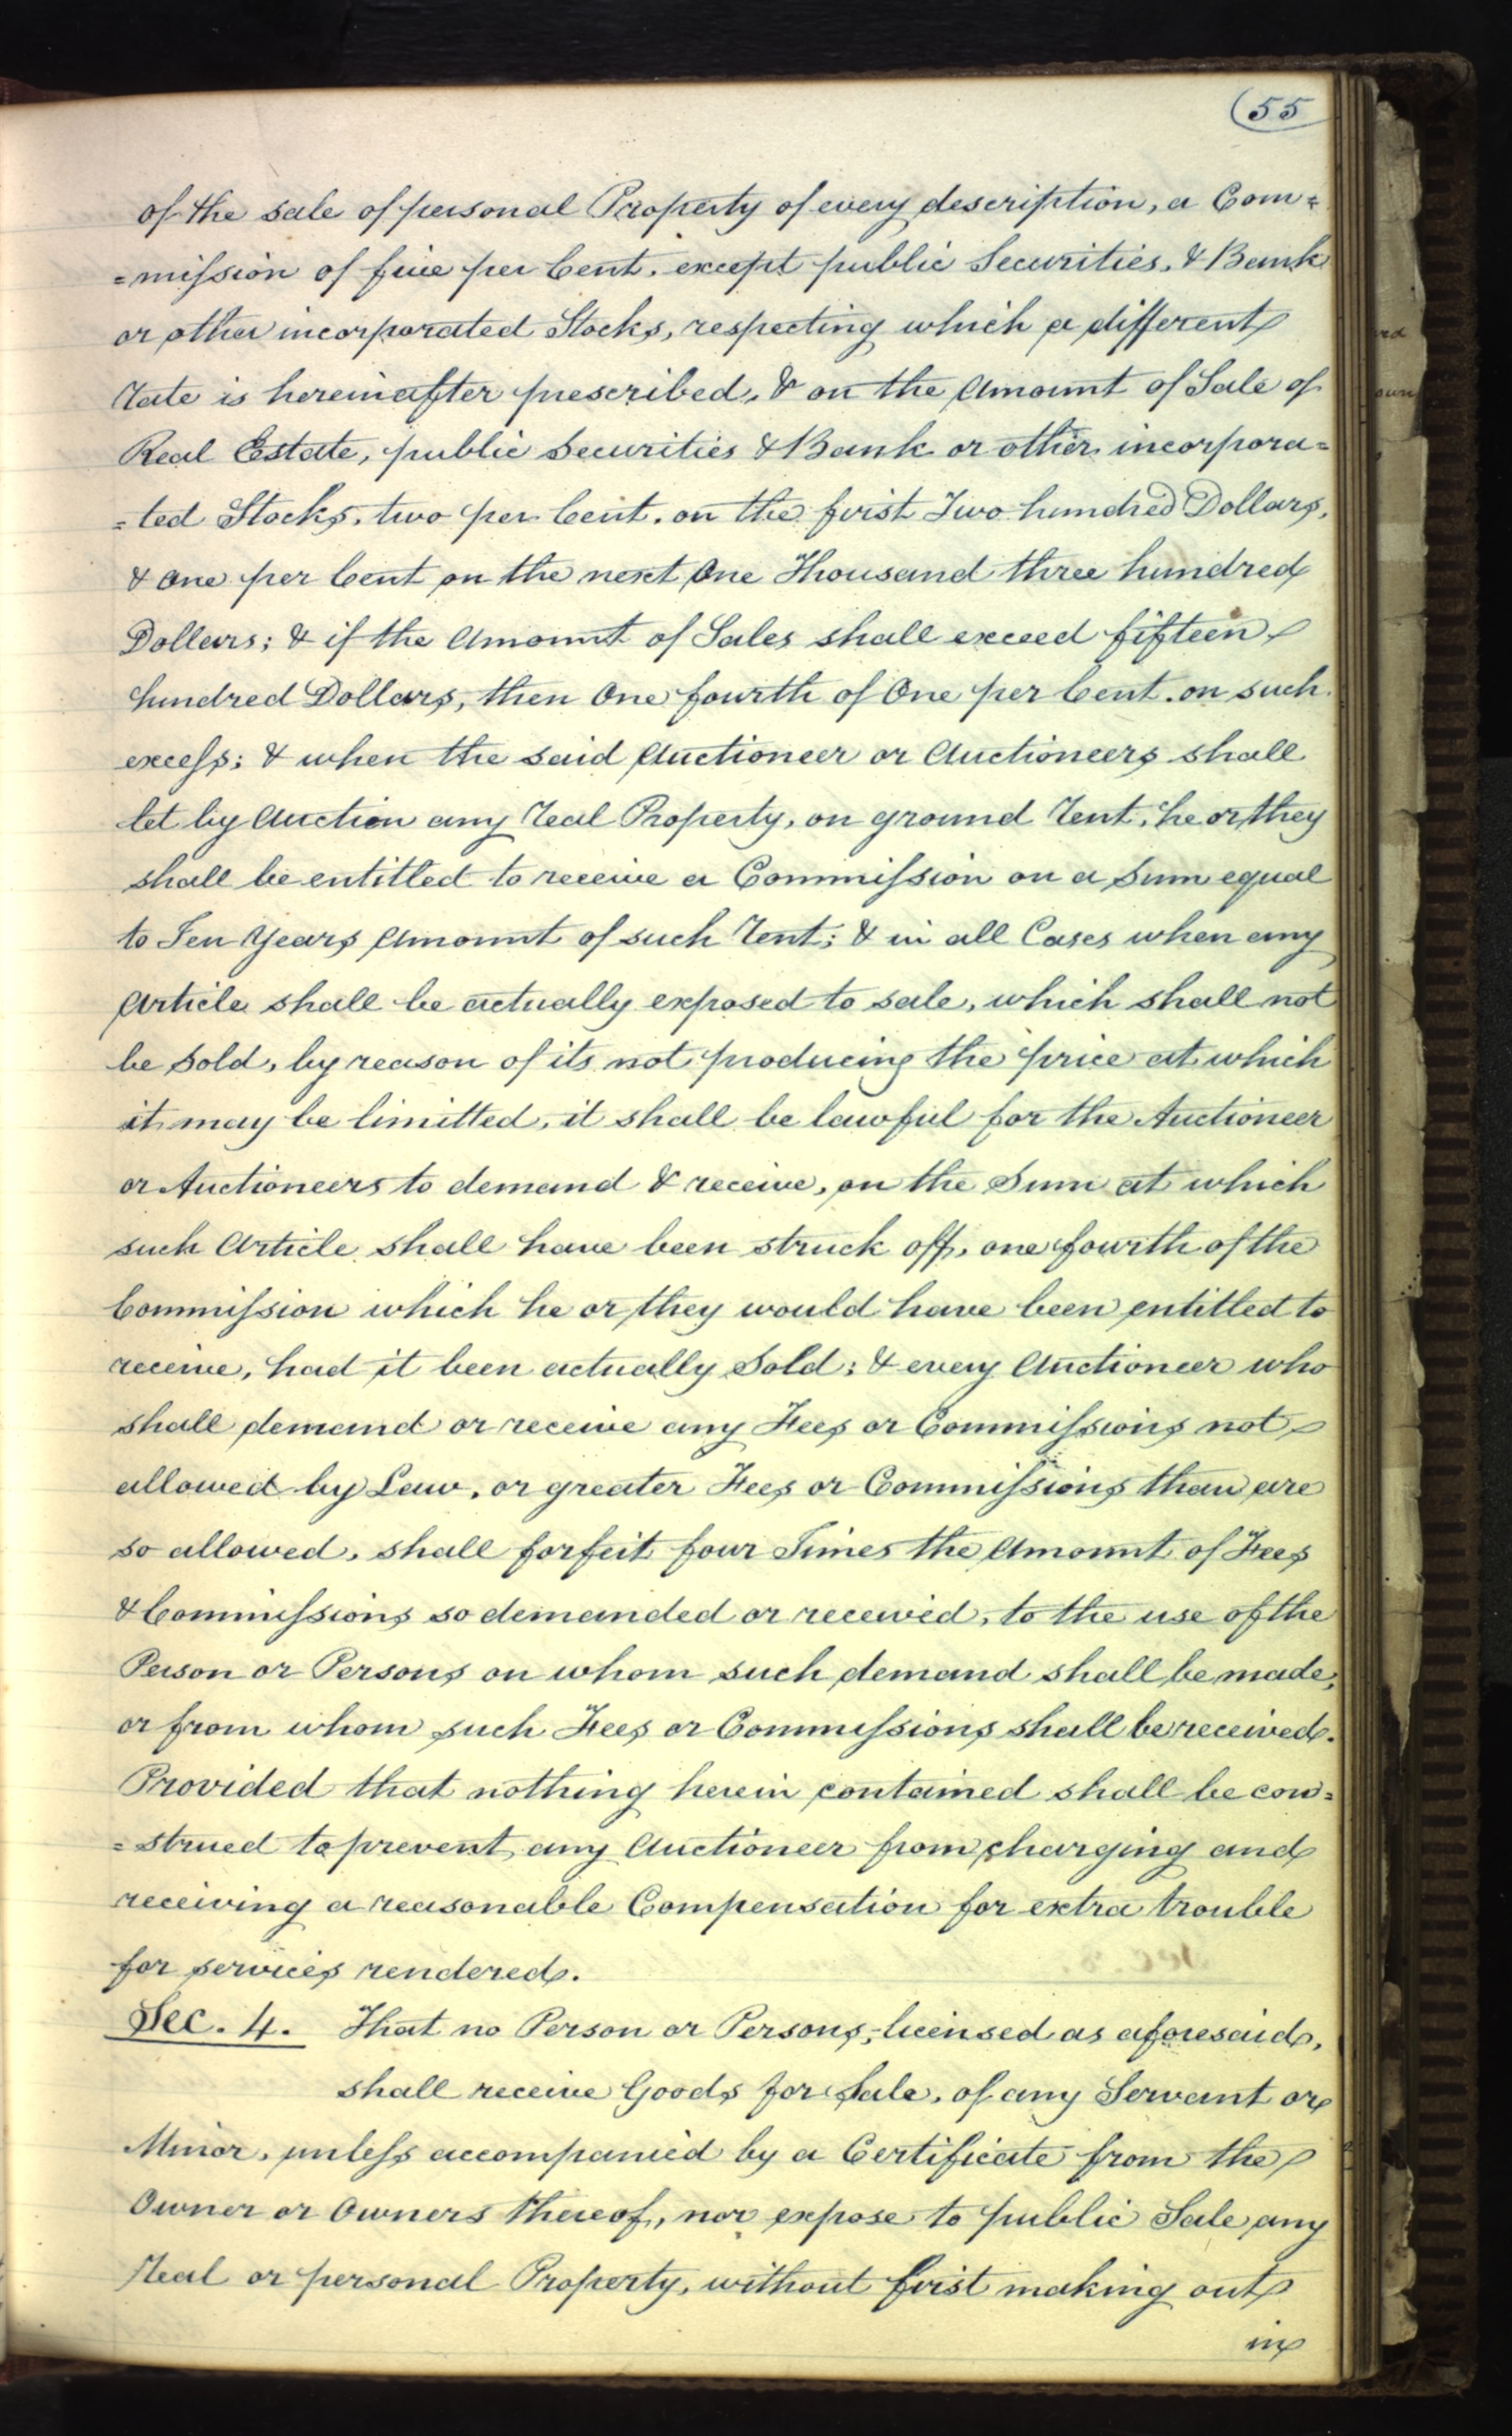 55
of the sale of personal Property of every description, a Com=
=mission of five per Cent. except public Securities, & Bank
or other incorporated Stocks, respecting which a different
rate is hereinafter prescribed, & on the Amount of Sale of
Real Estate, public Securities & Bank or other incorpora=
=ted Stocks, two per Cent. on the first Two hundred Dollars,
& one per Cent on the next One Thousand three hundred
Dollars; & if the Amount of Sales shall exceed fifteen
hundred Dollars, then One fourth of One per Cent. on such
excess; & when the said Auctioneer or Auctioneers shall
let by Auction any real Property, on ground rent, he or they
shall be entitled to receive a Commission on a Sum equal
to Ten Years Amount of such rent; & in all Cases when any
Article shall be actually exposed to sale, which shall not
be Sold, by reason of its not producing the price at which
it may be limitted, it shall be lawful for the Auctioneer
or Auctioneers to demand & receive, on the Sum at which
such Article shall have been struck off, one fourth of the
Commission which he or they would have been entitled to
receive, had it been actually Sold; & every Auctioneer who
shall demand or receive any Fees or Commissions not
allowed by Law, or greater Fees or Commissions than are
so allowed, shall forfeit four Times the Amount of Fees
& Commissions so demanded or received, to the use of the
Person or Persons on whom such demand shall be made,
or from whom such Fees or Commissions shall be received.
Provided that nothing herein contained shall be con=
=strued to prevent any Auctioneer from charging and
receiving a reasonable Compensation for extra trouble
for services rendered.
Sec. 4. That no Person or Persons, licensed as aforesaid,
shall receive Goods for Sale, of any Servant or
Minor, unless accompanied by a Certificate from the
Owner or Owners thereof, nor expose to public Sale any
real or personal Property, without first making out
in